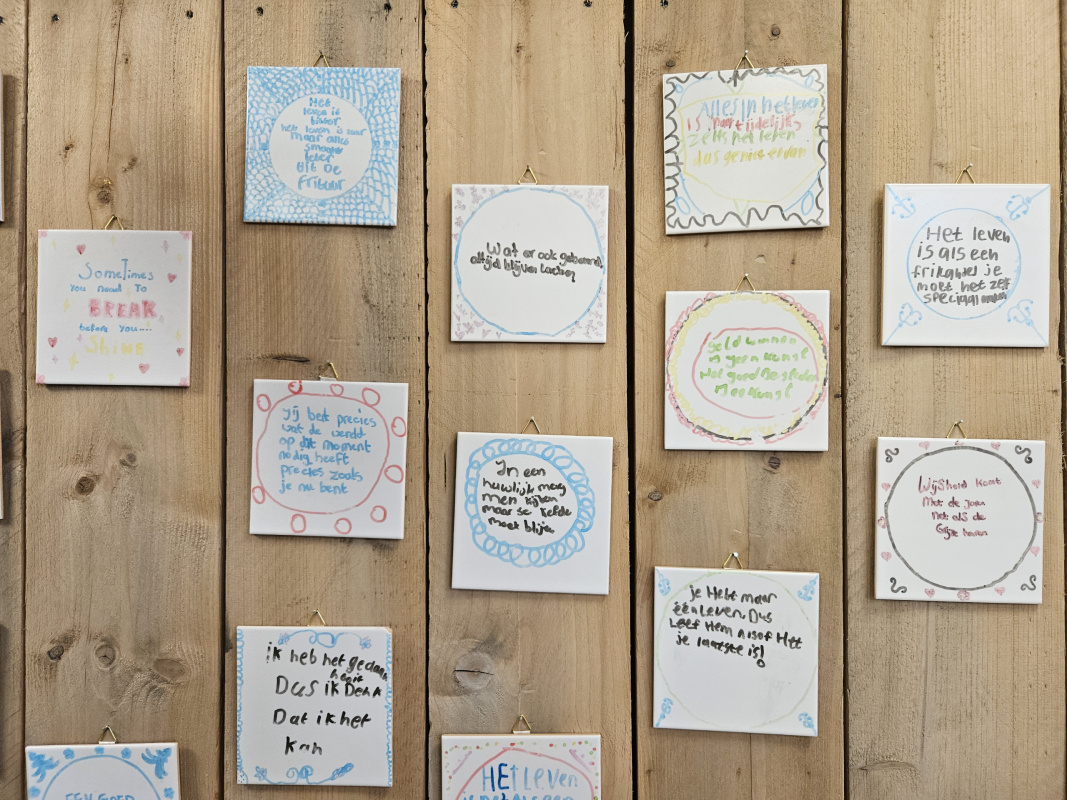 Sometimes
you need to
BREAK
before you....
Shine
Het
leven is
bitter
het leven is zuur
maar alles
smaakt
beter
uit De
frituur
Jij bent precies
wat de wereld
op dit moment
nodig heeft
precies zoals
je nu bent
ik heb het gedaan
Dus ik Denk
Dat ik het
kan
Wat er ook gebeurd,
altijd blijven lachen
In een
huwlijk mag
men kijken
maar de liefde
moet blijven
HEt LEVEN
Alles in het leven
is maar tijdelijk
zelfs het leven
dus geniet ervan
Geld winnen
is geen kunst
Het goed besteden
is de kunst
je Hebt maar
één Leven. Dus
Leef Hem alsof Het
je laatste is!
Het leven
is als een
frikandel je
moet het zelf
speciaal maken
Wijsheid komt
met de jaren
net als de
Grijze haren
EEN GOED